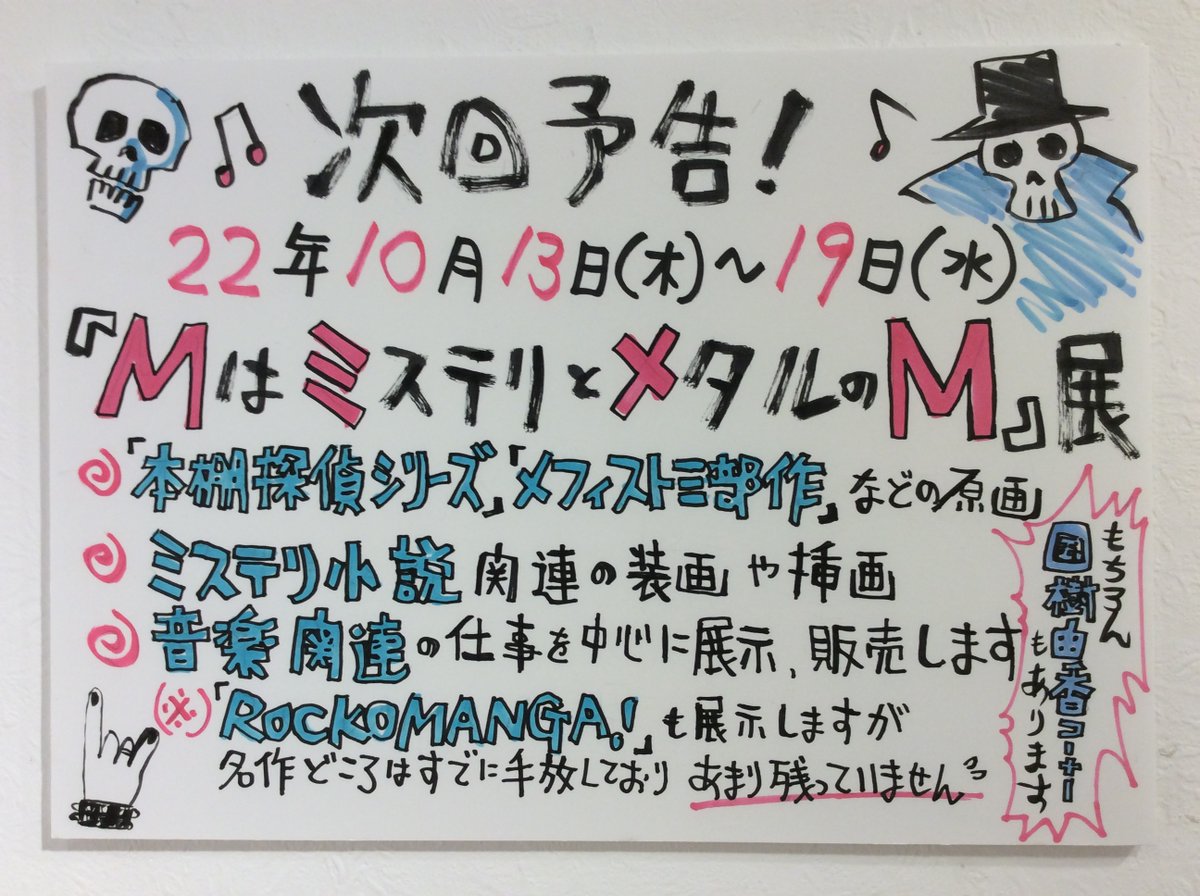 次回予告!
22年10月13日(木)~19日(水)
『MはミステリとメタルのM』展
「本棚探偵シリーズ」「メフィスト三部作」などの原画
ミステリ小説関連の装画や挿画
音楽関連の仕事を中心に展示、販売します
(※)「ROCKOMANGA!」も展示しますが
名作どころはすでに手放しており あまり残っていません
もちろん
国樹由香コーナー
もあります